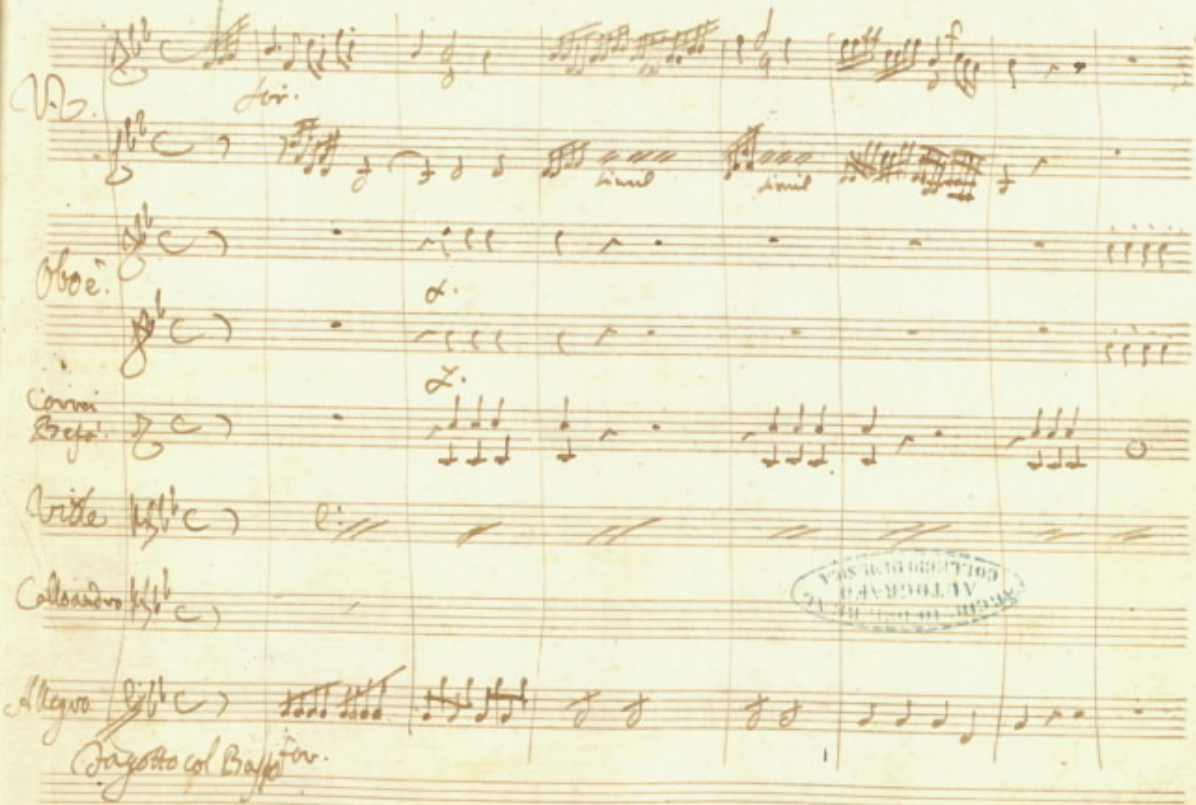 VV.
for.
simil simil
Oboè.
Corni
Befà.
Viole
Calloandro
Allegro
Fagotto col Basso for.
AUTOGRAFO